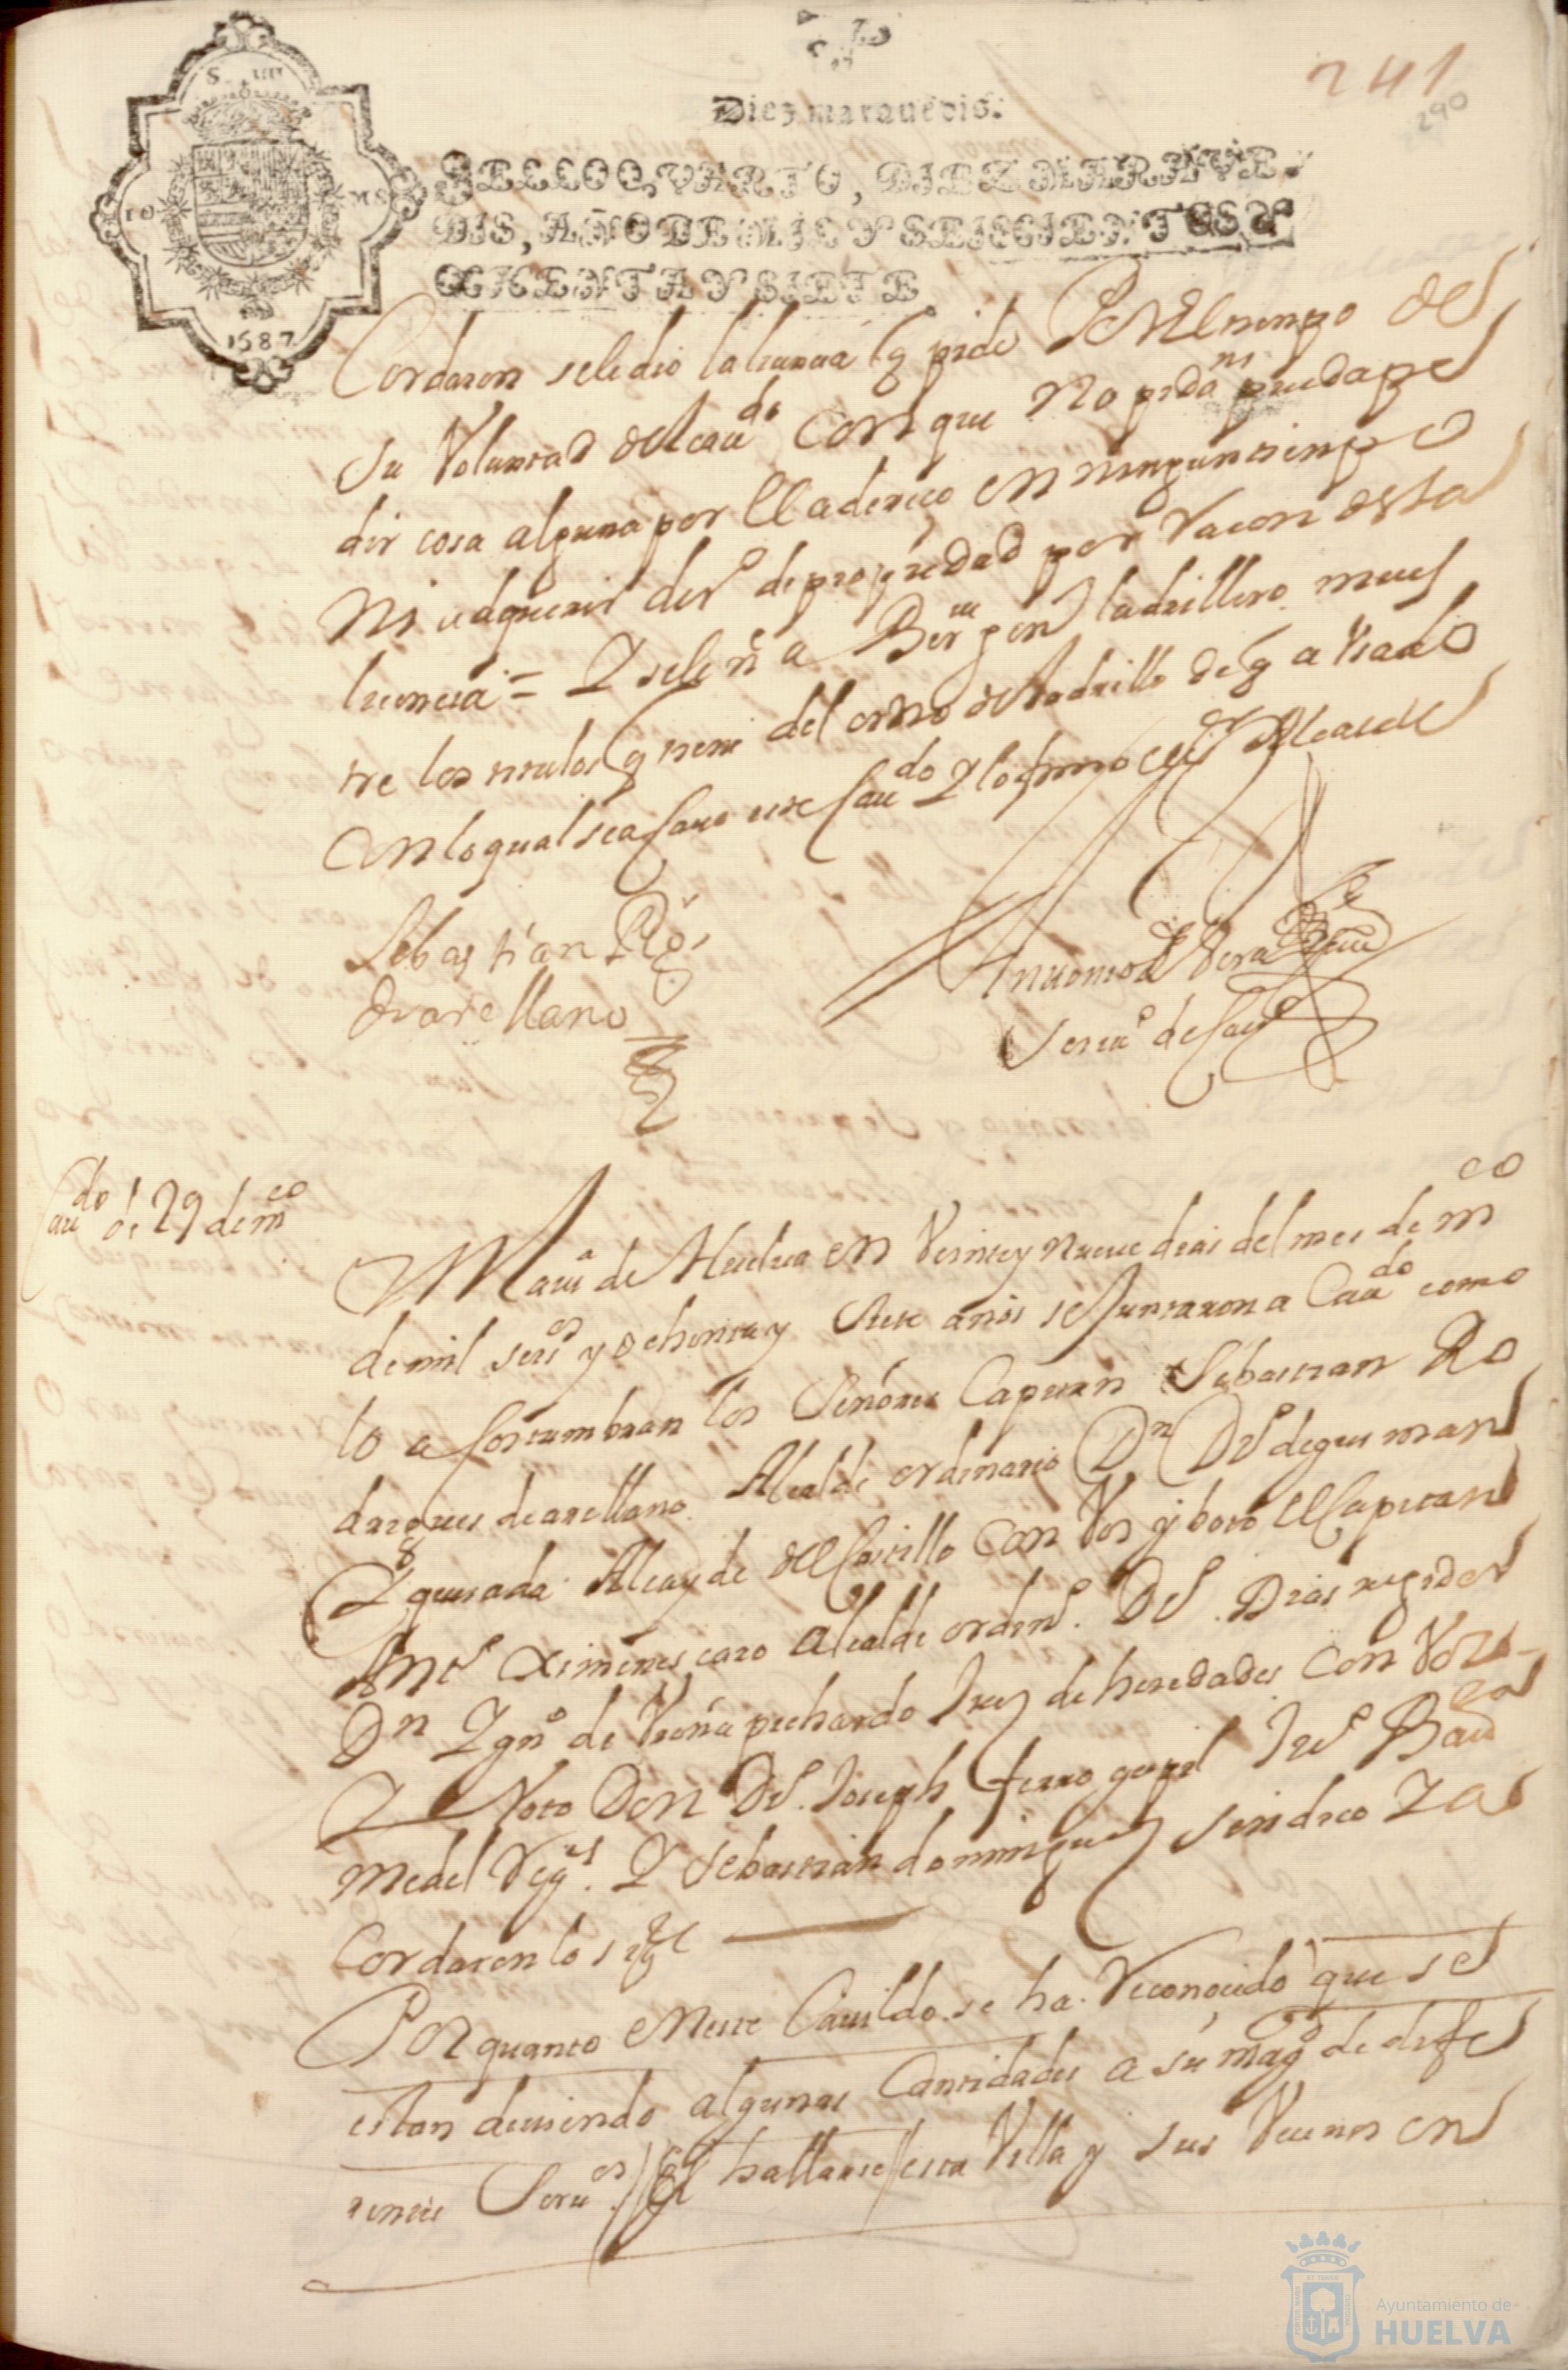 241
290
Diez maravedis.
S IIII
10 MS
1687
SELLO QVARTO, DIEZ MARAVE-
DIS, AÑO DE MIL Y SEISCIENTOS Y
OCHENTA Y SIETE
Cordaron sele dio la licencia q pide Por el tienpo de
su Voluntad del caudo con que no pida ni pueda pe
dir cosa alguna por el adereço en ningun tienpo
ni adquerir dero de propriedad por raçon desta
licencia = Y sele a ladrillero mues
tre los titulos q tiene del orno de ladrillo de q a usado
en lo qual se a cauo este Caudo Y lo firmo el sr Alcalde
Sebastian Ros
de arellano
Antonio de Vera
Scriuo de Cauo
Caudo de 29 de mco
En la uiª de Huelua en Veinte y nueue dias del mes de mco
de mil seisos y ochenta y siete años se Juntaron a Caudo como
lo acostumbran los Señores Capitan Sebastian Ro
drigues de arellano Alcalde ordinario Dn Do de gusman
Y quesada Alcayde del Castillo con Vos y boto el Capitan
Anto Ximenes caro Alcalde ordino. Do. Dias regidor
Dn Ygno de Ureña pichardo Juez de heredades con Voz
Y Voto Don Do. Joseph fierro
Medel Regs. Y Sebastian dominguez sindico Y a
Cordaron lo sigte
Por quanto en este Cauildo se ha Reconocido que se
estan deuiendo algunas Cantidades a su magd de dife
rentes Seruos. Y el hallarse esta Villa y sus Vecinos en
Ayuntamiento de
HUELVA